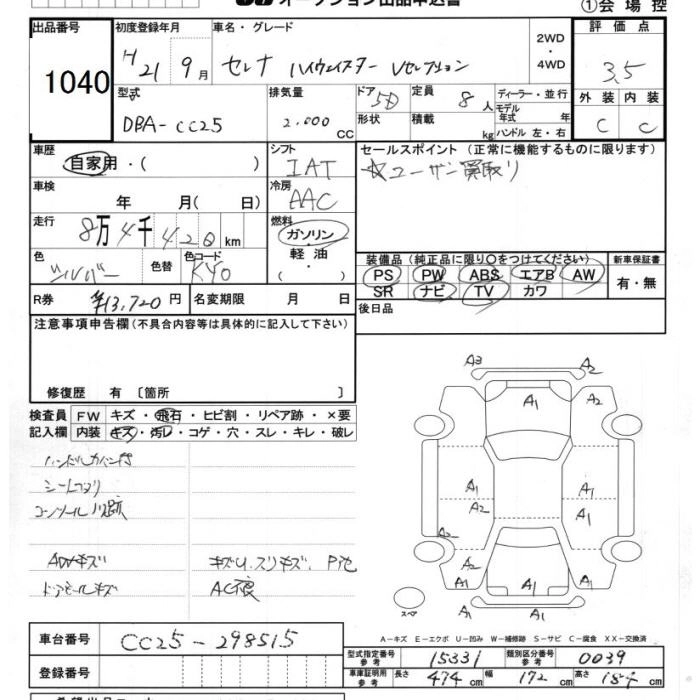 オークション出品申込書
①会場控
出品番号 1040
初度登録年月 H21 9月
車名・グレード セレナ ハイウェイスター Vセレクション
2WD・4WD
評価点 3.5
型式 DBA-CC25
排気量 2.000 CC
ドア 5D 形状
定員 8人 積載 kg
ディーラー・並行
モデル年式 年式
ハンドル 左・右
外装 C 内装 C
車歴 自家用・( )
シフト IAT
セールスポイント(正常に機能するものに限ります)
☆ユーザー買取り
車検 年 月( 日)
冷房 AAC
走行 8万4千420km
燃料 ガソリン・軽油・( )
色 シルバー 色替 色コード K40
装備品(純正品に限り○をつけてください)
新車保証書
PS PW ABS エアB AW
SR ナビ TV カワ
有・無
R券 ¥13,720円 名変期限 月 日
後日品
注意事項申告欄(不具合内容等は具体的に記入して下さい)
修復歴 有 〔箇所 〕
検査員 FW キズ・飛石・ヒビ割・リペア跡・×要
記入欄 内装 キズ・汚レ・コゲ・穴・スレ・キレ・破レ
A3 A2
A1 A2
A1 A1
A2 A1
A2
A2 A1 A2
A1 A1
スペア
ADVキズ
キズU.スリキズ.
ドアモールキズ
AC不良
A-キズ E-エクボ U-凹み W-補修跡 S-サビ C-腐食 XX-交換済
車台番号 CC25-298515
型式指定番号 参考 15331 類別区分番号 参考 0039
登録番号
車庫証明用 参考 長さ 474cm 幅 172cm 高さ 184cm